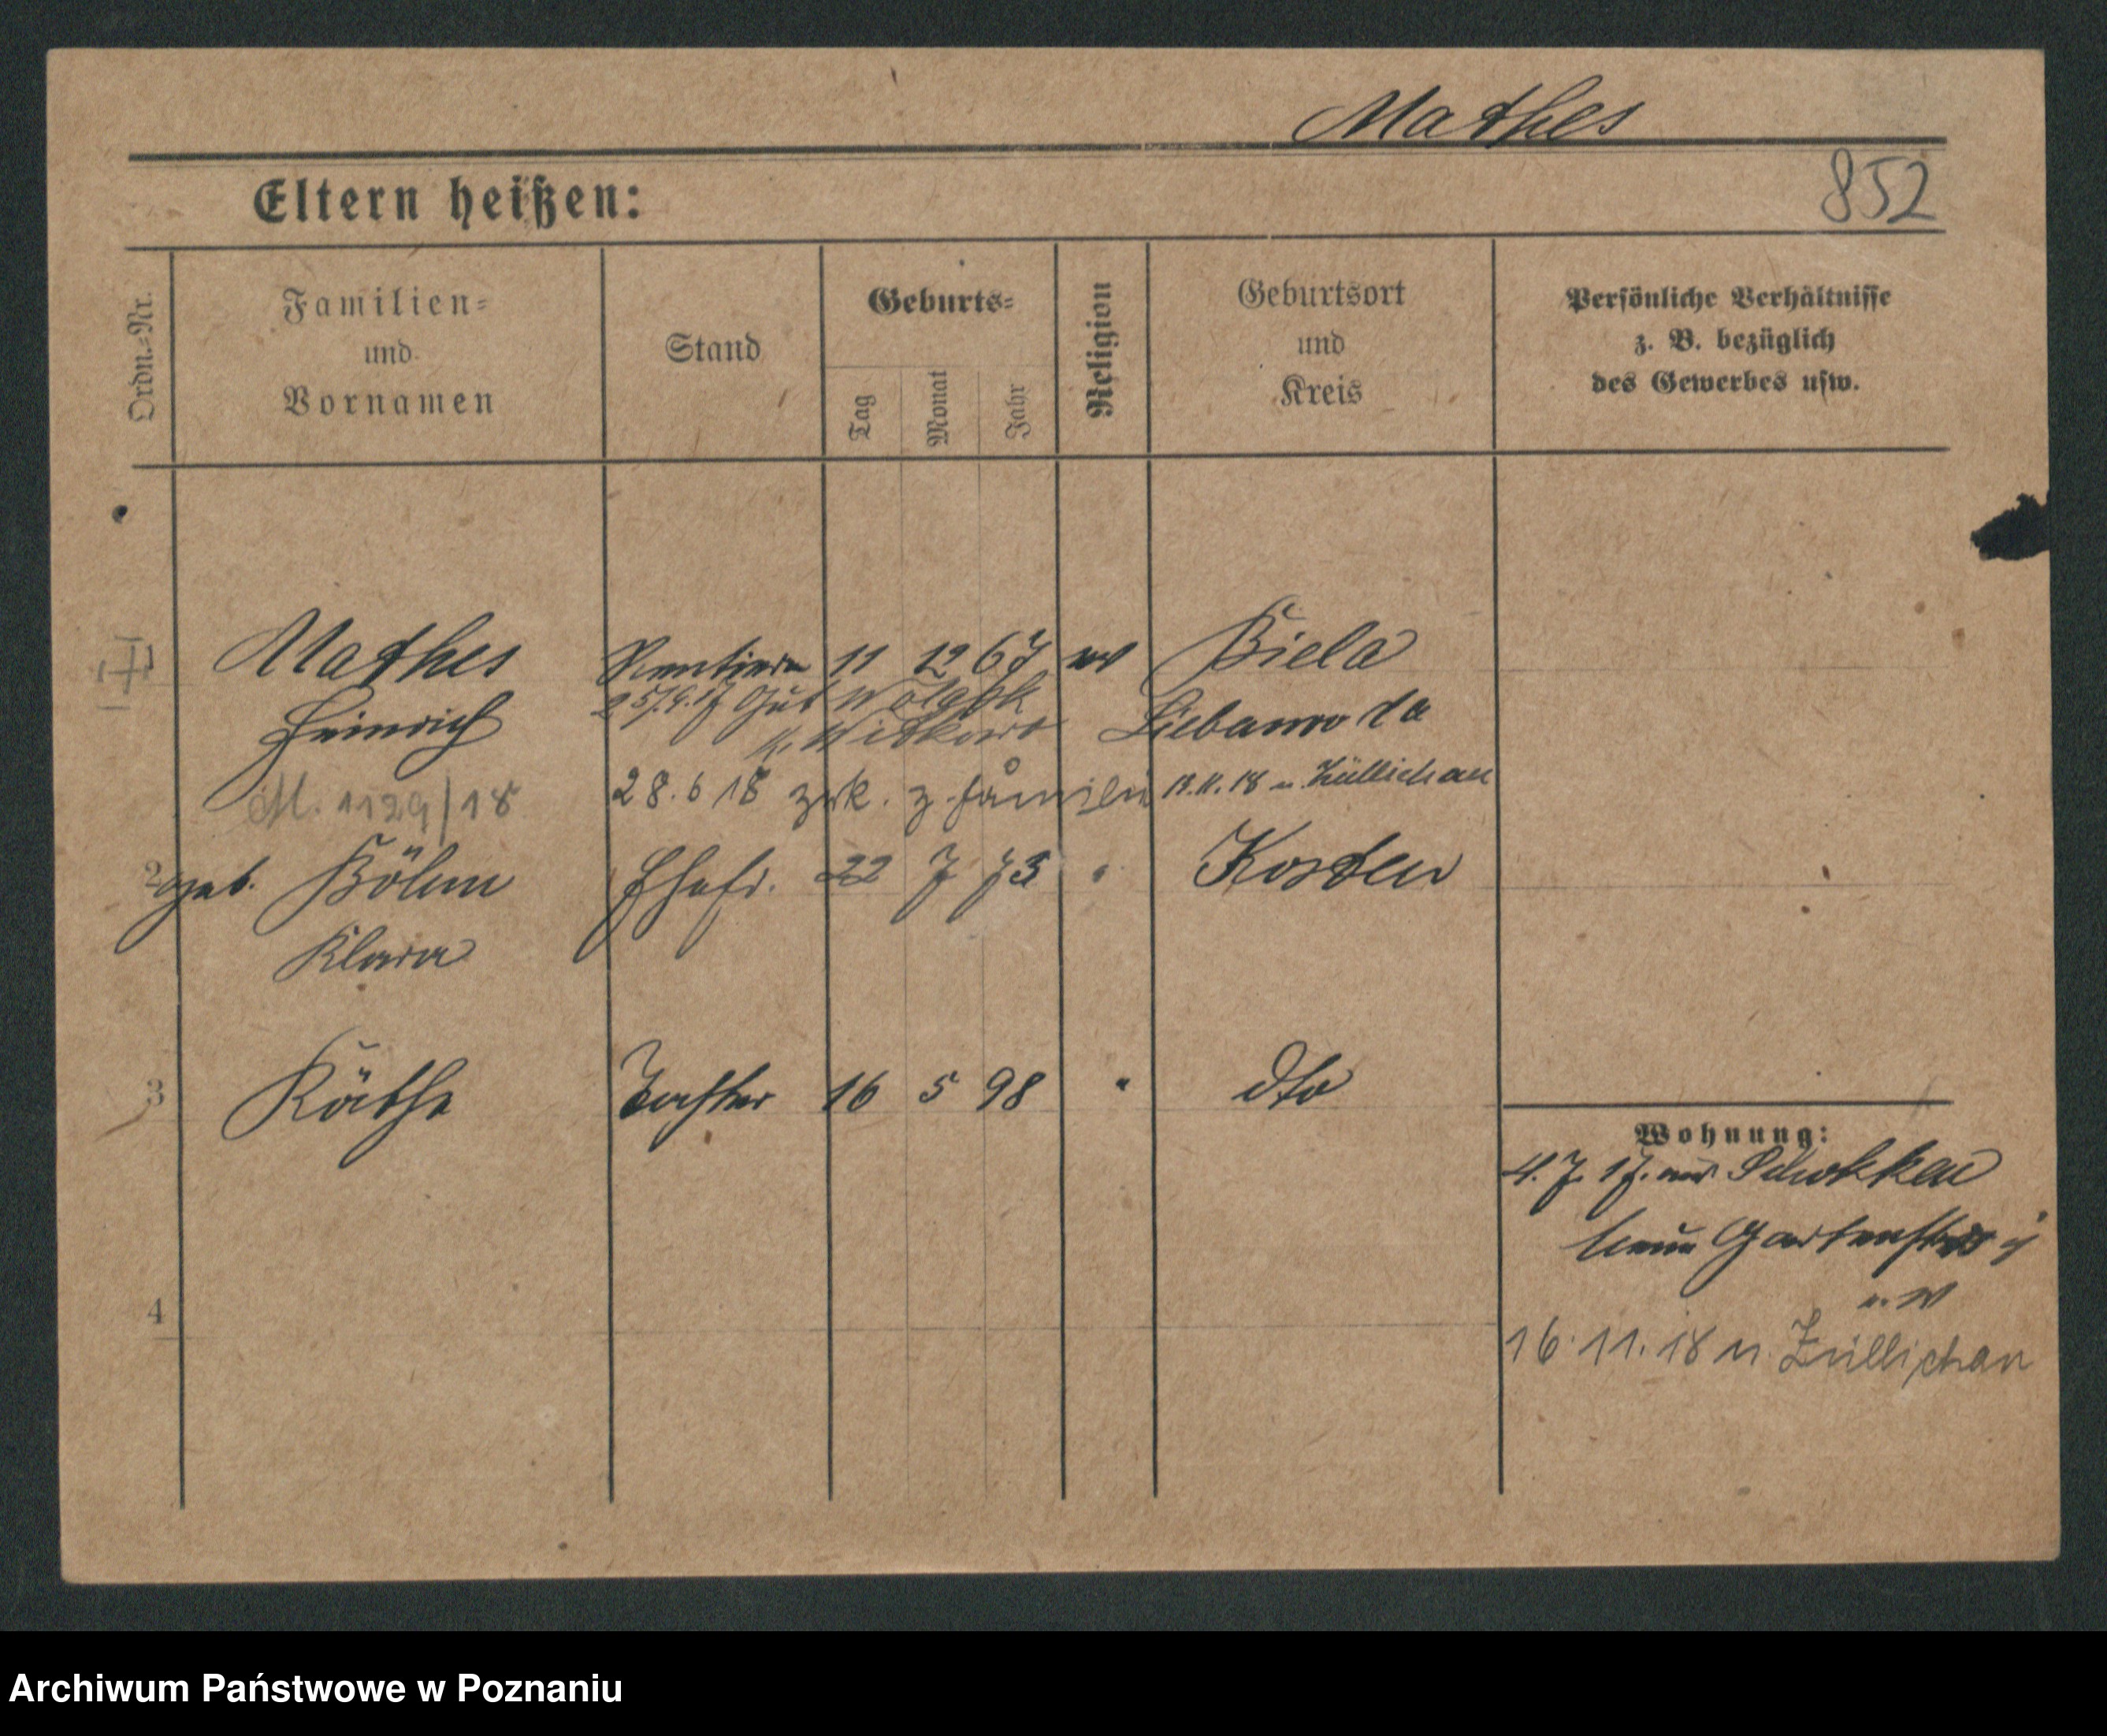 Mathes
852
Eltern heißen:
Ordn.-Nr.
Familien-
und
Vornamen
Stand
Geburts-
Tag
Monat
Jahr
Religion
Geburtsort
und
Kreis
Persönliche Verhältnisse
z. B. bezüglich
des Gewerbes usw.
Mathes Rentiere 11 12 67 ev Biela
Heinrich
25/9.17 Gut
K. Witkowo
Liebanwo da
M. 1129/18
28.6 18 zrk. z. Familie
18.11.18 n. Züllichau
2 geb. Böhm Ehefr. 22 7 73 " Kosten
Klara
3 Käthe Tochter 16 5 98 " dto
Wohnung:
4.7.17. aus Schokken
Gartenstr
16.11.18 n. Züllichau
4
Archiwum Państwowe w Poznaniu